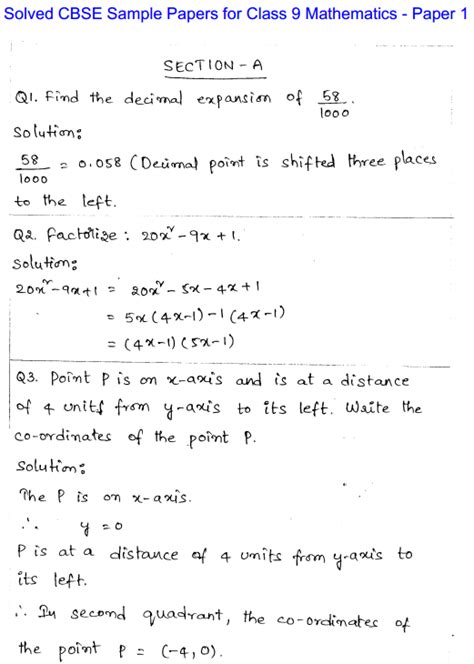 Solved CBSE Sample Papers for Class 9 Mathematics - Paper 1
SECTION - A
Q1. Find the decimal expansion of 58/1000.
Solution:
58/1000 = 0.058 (Decimal point is shifted three places
to the left.
Q2. Factorize : 20x² - 9x + 1.
Solution:
20x² - 9x + 1 = 20x² - 5x - 4x + 1
= 5x (4x-1) - 1 (4x-1)
= (4x-1) (5x-1)
Q3. Point P is on x-axis and is at a distance
of 4 units from y-axis to its left. Write the
co-ordinates of the point P.
Solution:
The P is on x-axis.
∴ y = 0
P is at a distance of 4 units from y-axis to
its left.
∴ In second quadrant, the co-ordinates of
the point P = (-4, 0).